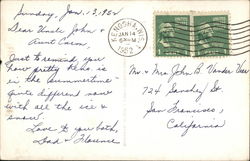 Sunday, Jan. 13, 1952
Dear Uncle John &
Aunt
Just to remind you
how pretty Keno. is
in the summertime
Quite different now
with all the ice &
snow.
Love to you both,
Dad & Florence
KENOSHA, WIS.
JAN 14
1952
Mr. & Mrs. John B. Vander
724 Sanchez St.
San Francisco,
California